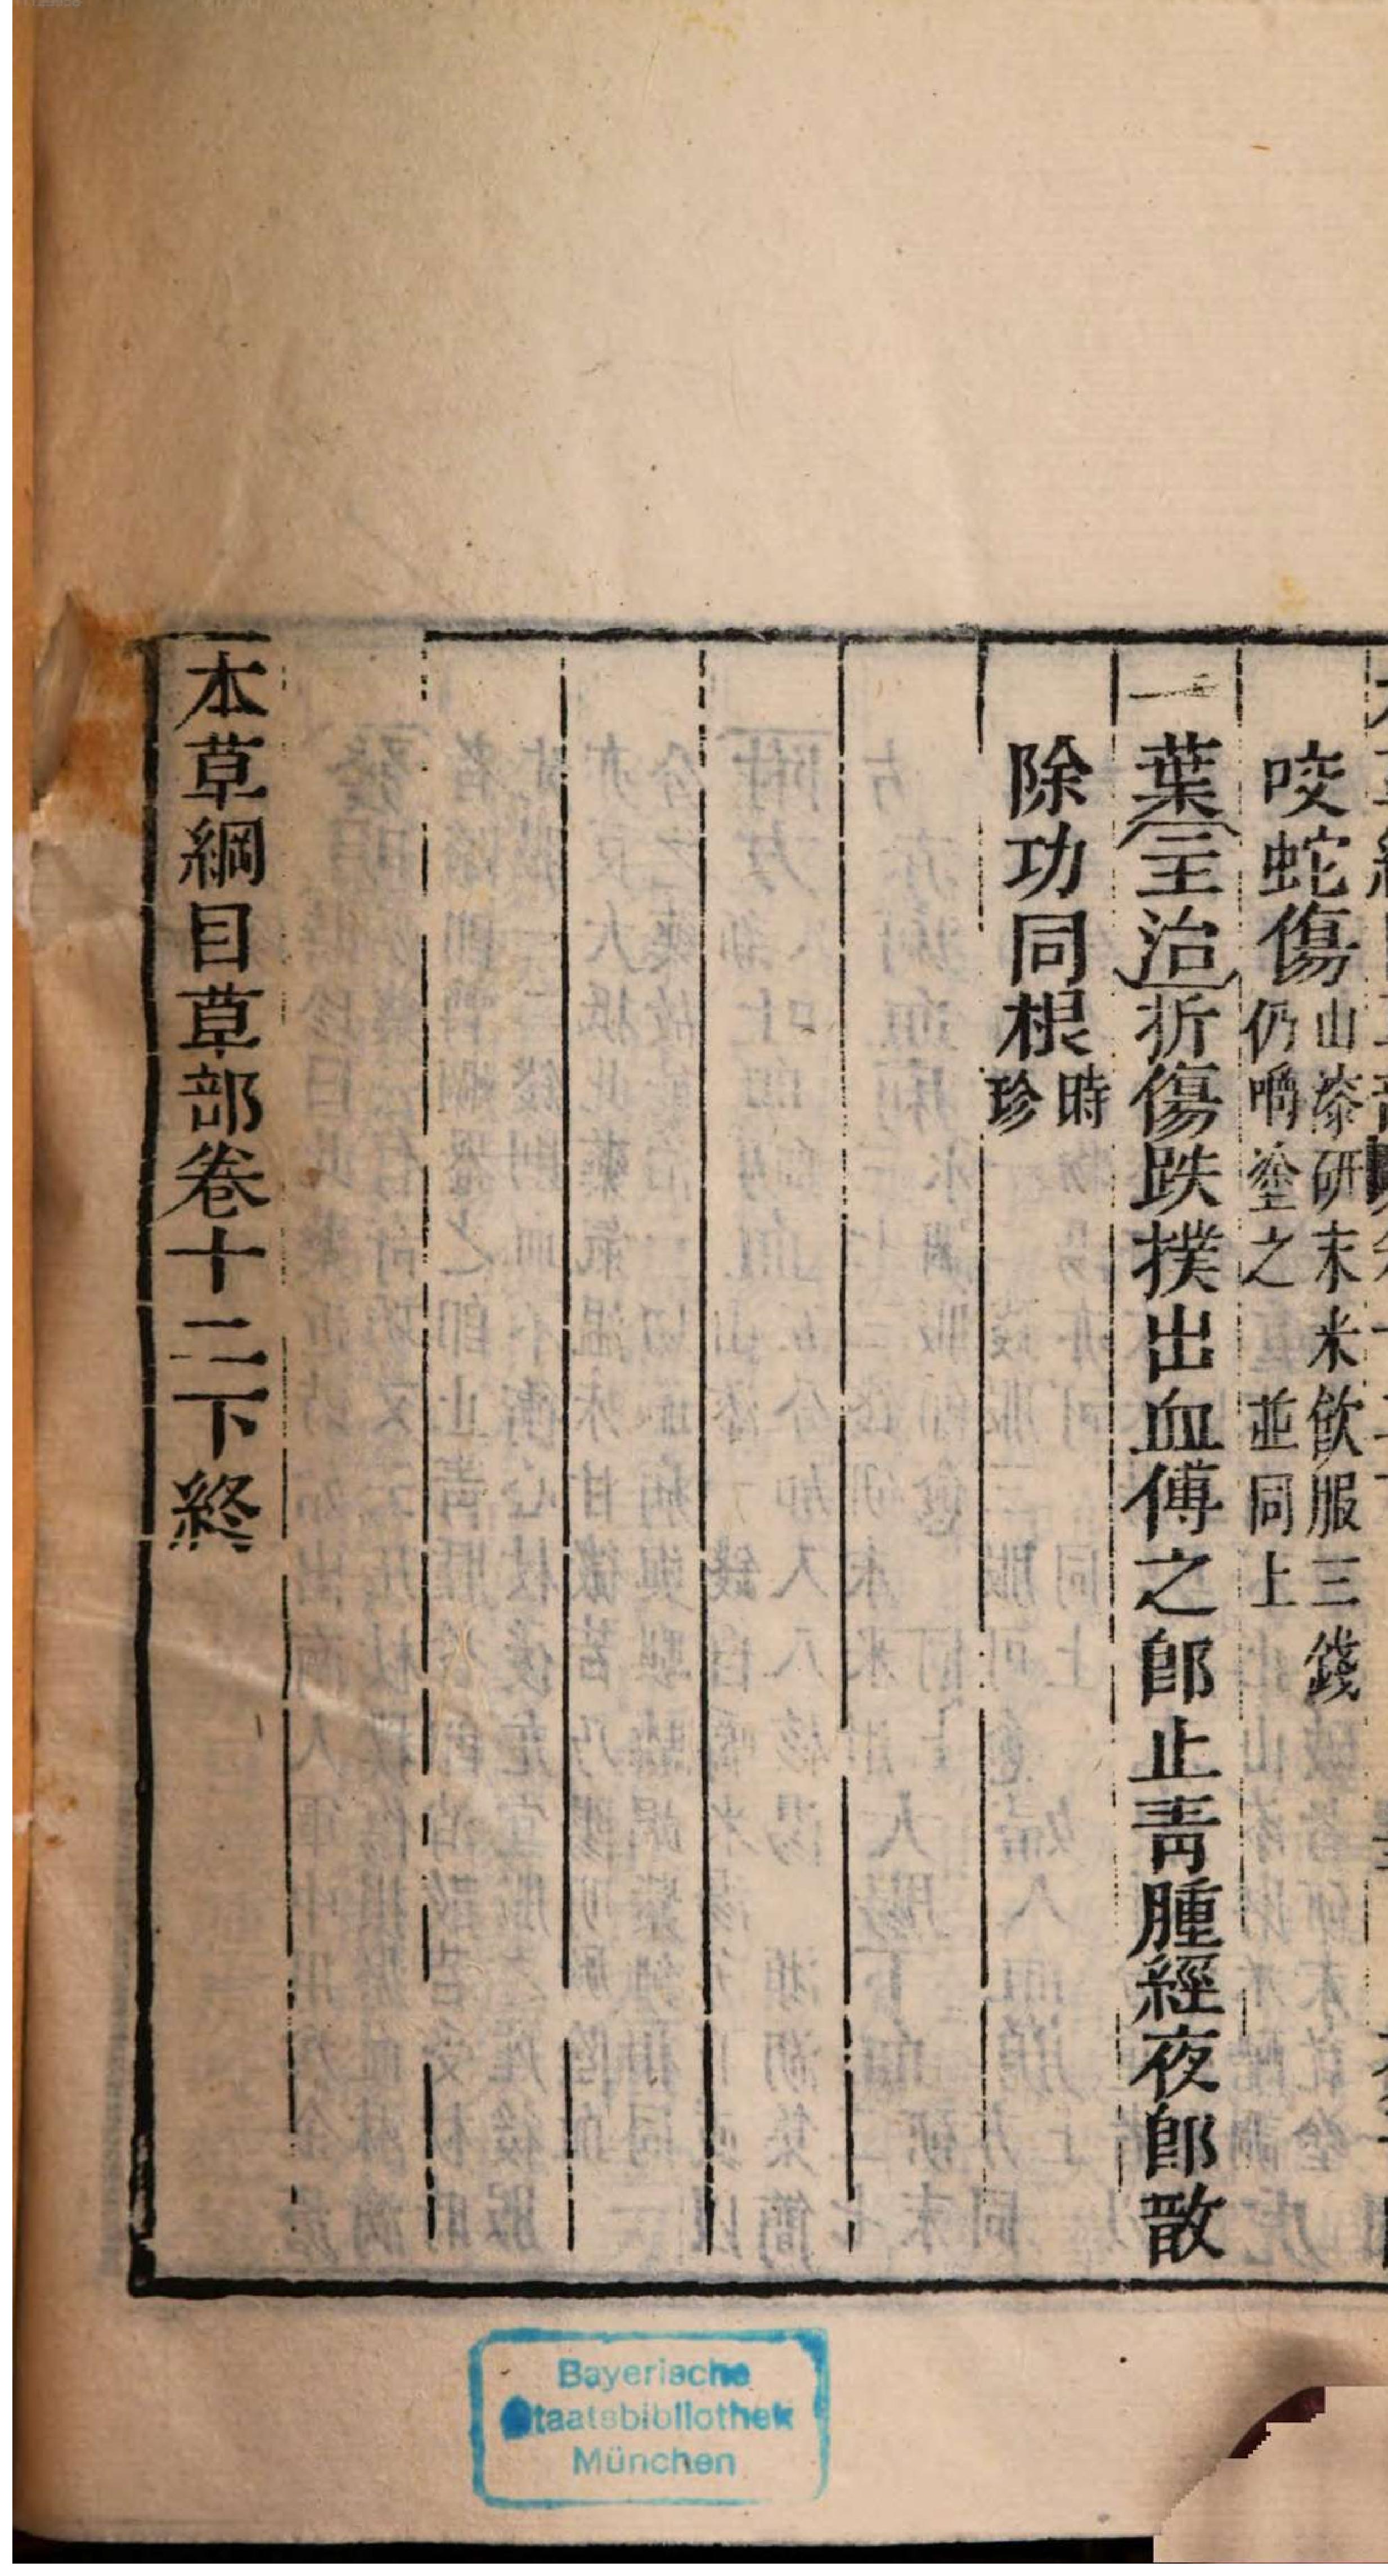 咬蛇傷山漆研末米飲服三錢仍嚼塗之 並同上
葉主治折傷跌撲出血傅之卽止靑腫經夜卽散
除功同根時珍
本草綱目草部卷十二下終
Bayerische
Staatsbibliothek
München